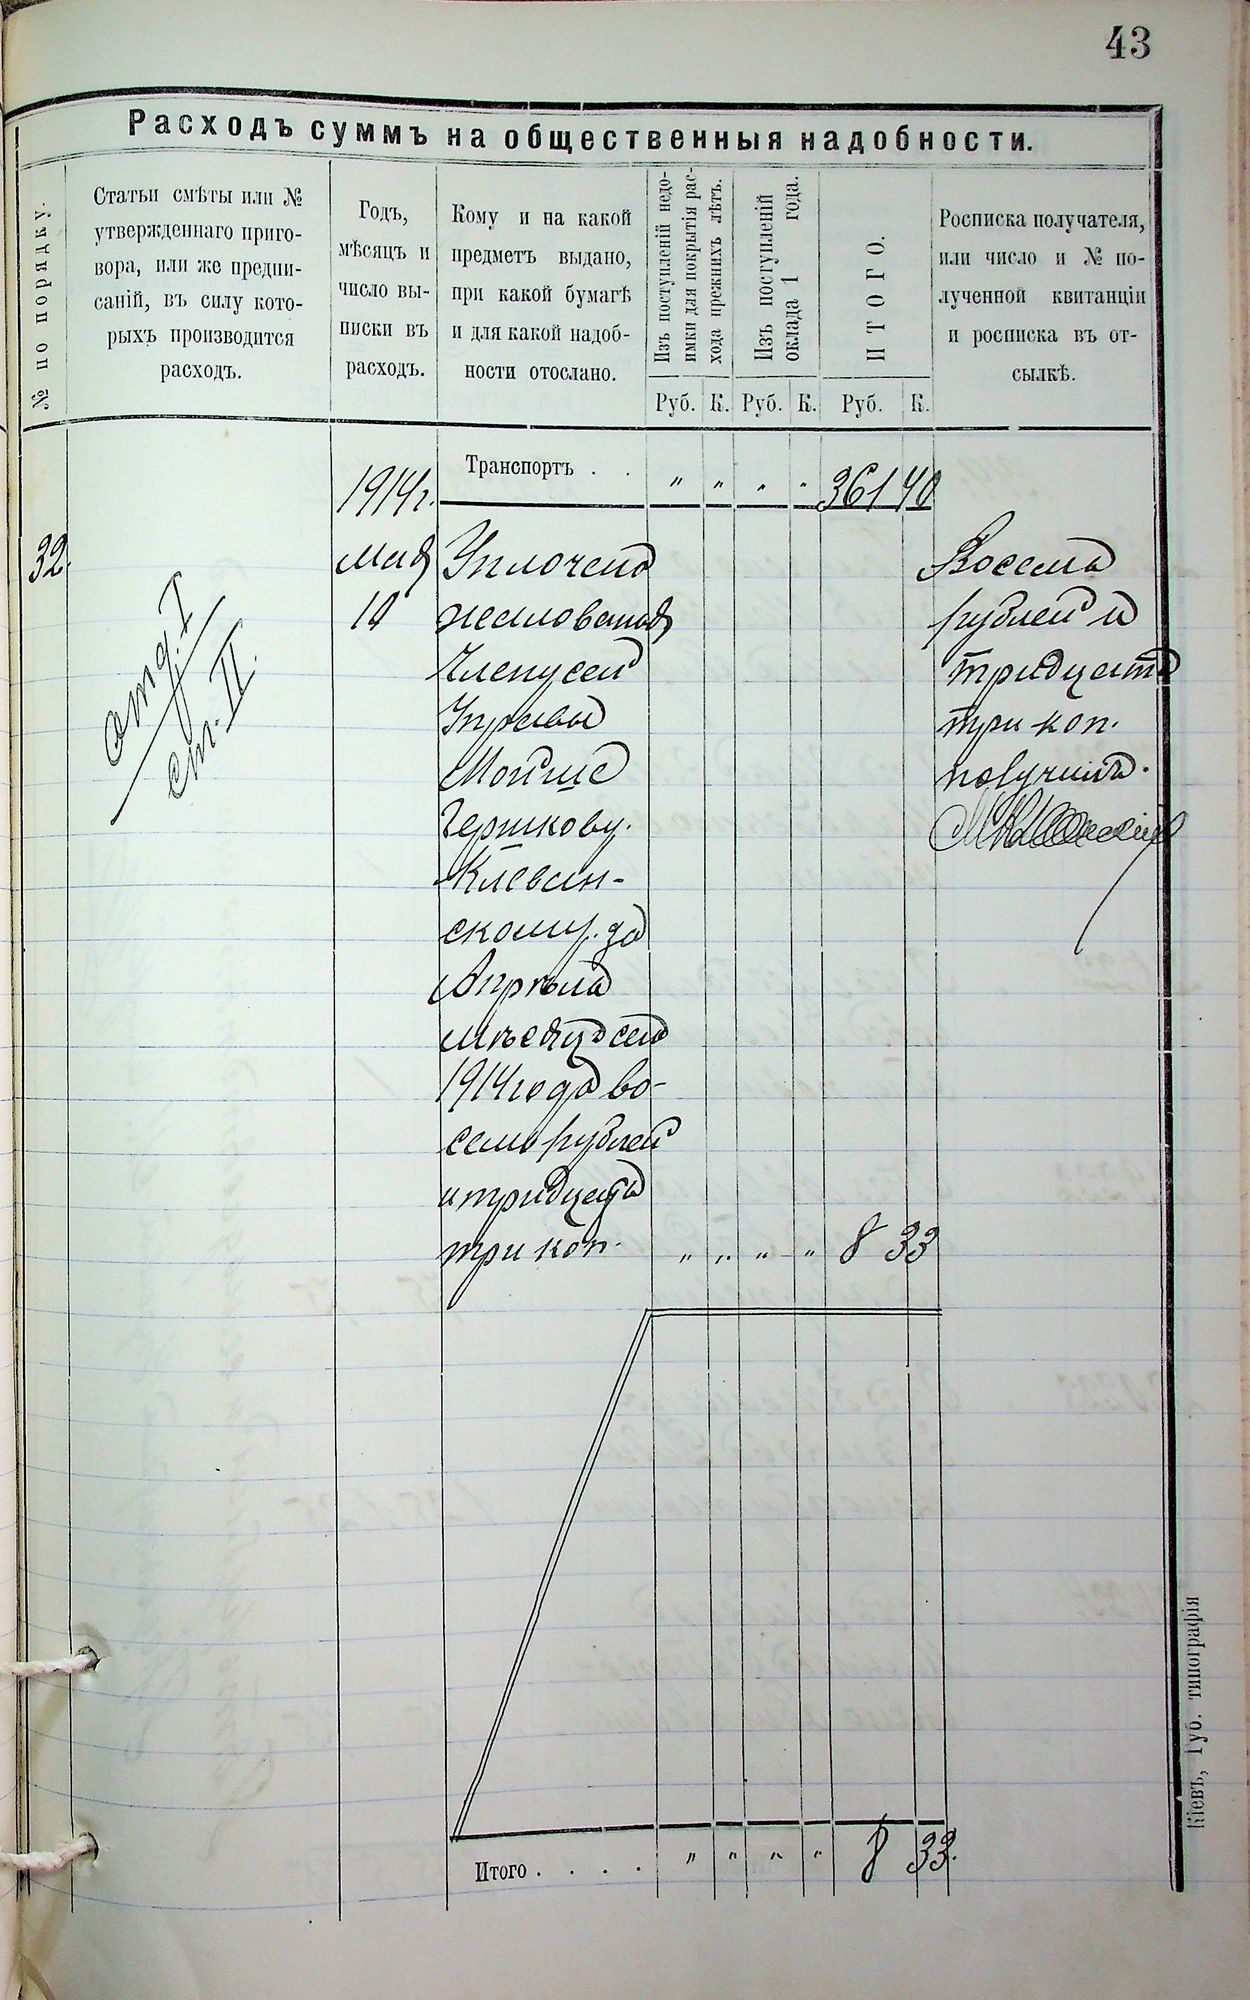 43
Расходъ суммъ на общественныя надобности.
№ по порядку.
Статьи смѣты или №
утвержденнаго приго-
вора, или же предпи-
саній, въ силу кото-
рыхъ производится
расходъ.
Годъ,
мѣсяцъ и
число вы-
писки въ
расходъ.
Кому и на какой
предметъ выдано,
при какой бумагѣ
и для какой надоб-
ности отослано.
Изъ поступленій недо-
имки для покрытія рас-
хода прежнихъ лѣтъ.
Изъ поступленій
оклада 1 года.
ИТОГО.
Росписка получателя,
или число и № по-
лученной квитанціи
и росписка въ от-
сылкѣ.
Руб. К. Руб. К. Руб. К.
Транспортъ . . " " " " 361 40
1914г.
32.
Мая
10
отд. I
ст. II.
Уплочено
жалованья
Члену сей
Управы
Мойше
Гершкову
Клебан-
скому за
Апрѣль
мѣсяцъ сего
1914 года во-
семь рублей
и тридцать
три коп. " " " " 8 33
Восемь
рублей и
тридцать
три коп.
получилъ.
Итого . . . . " " " " 8 33.
Кіевъ, Губ. типографія